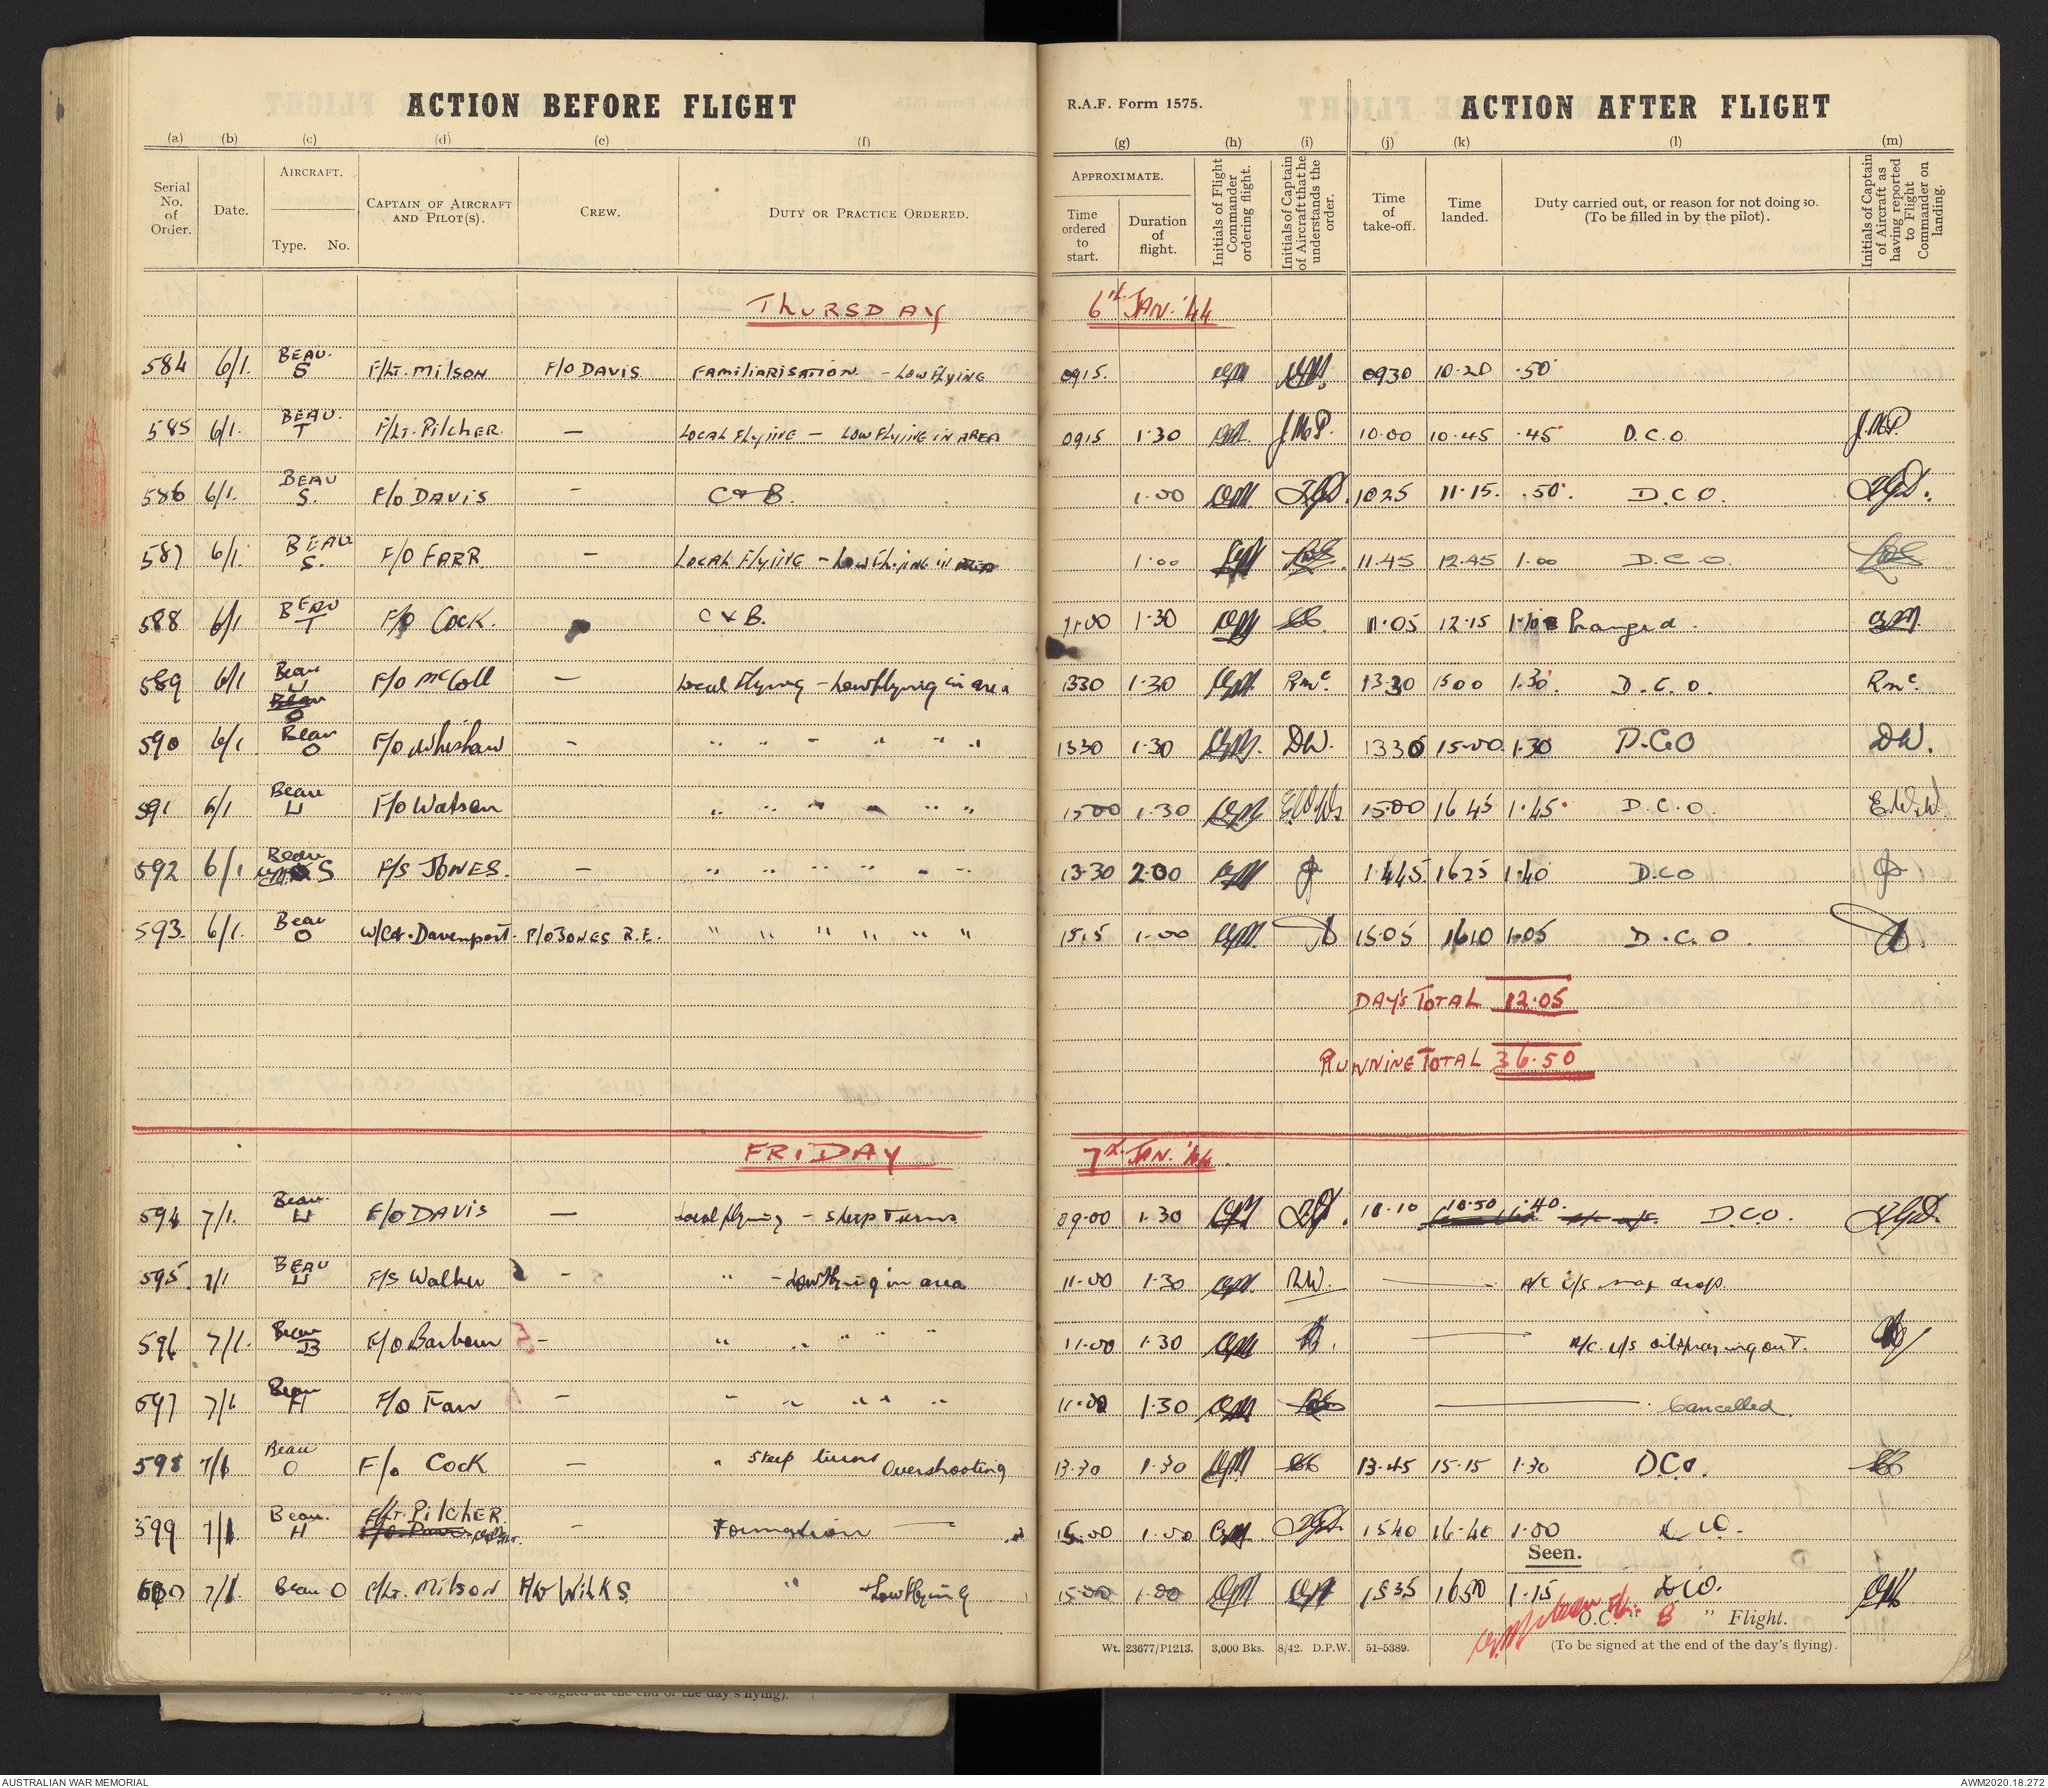 ACTION BEFORE FLIGHT
R.A.F. Form 1575. ACTION AFTER FLIGHT
(a) (b) (c) (d) (e) (f) (g) (h) (i) (j) (k) (l) (m)
Serial No. of Order.
Date.
AIRCRAFT.
Type. No.
CAPTAIN OF AIRCRAFT AND PILOT(S).
CREW.
DUTY OR PRACTICE ORDERED.
APPROXIMATE.
Time ordered to start.
Duration of flight.
Initials of Flight Commander ordering flight.
Initials of Captain of Aircraft that he understands the order.
Time of take-off.
Time landed.
Duty carried out, or reason for not doing so. (To be filled in by the pilot).
Initials of Captain of Aircraft as having reported to Flight Commander on landing.
THURSDAY 6th JAN. '44
584 6/1. BEAU. S F/LT. MILSON F/O DAVIS FAMILIARISATION - LOW FLYING 0915. 0930 10.20 .50
585 6/1. BEAU. T F/LT. PILCHER — LOCAL FLYING - LOW FLYING IN AREA 0915 1.30 J.M.P. 10.00 10.45 .45 D.C.O. J.M.P.
586 6/1. BEAU S. F/O DAVIS - C & B. 1.00 1025 11.15. .50. D.C.O.
587 6/1. BEAU S. F/O FARR - LOCAL FLYING - LOW FLYING IN AREA 1.00 11.45 12.45 1.00 D.C.O.
588 6/1 BEAU T F/O COCK. C & B. 11.00 1.30 11.05 12.15 1.10 Pranged.
589 6/1 Beau U F/O McColl — Local Flying - Low flying in area 1330 1.30 RMc. 13.30 1500 1.30 D.C.O. RMc.
Beau O
590 6/1 Beau O F/O Whishaw - " " - " " " 1330 1.30 DW. 1330 15.00 1.30 D.C.O DW.
591 6/1 Beau U F/O Watson " " - - " " 1500 1.30 E.W.W. 15.00 1645 1.45 D.C.O. E.W.W.
592 6/1 Beau S F/S JONES. - " " " " - " 13.30 2.00 1445 1625 1.40 D.CO
593 6/1. Beau O W/Cdr. Davenport. P/O JONES R.E. " " " " " " 1515 1.00 15.05 1610 1.05 D.C.O.
DAY'S TOTAL 12.05
RUNNING TOTAL 36.50
FRIDAY 7th JAN. '44.
594 7/1. Beau. U F/O DAVIS — Local flying - steep turns 09.00 1.30 10.10 10.50 .40. D.C.O.
595. 7/1 BEAU U F/S Walker - " - Low flying in area 11.00 1.30 R.W. A/C U/S mag drop.
596 7/1. Beau B F/O Barbour - " " " " " 11.00 1.30 A/C. U/S oil spraying out.
597 7/1 Beau H F/O Farr - " " " " " 11.00 1.30 Cancelled.
598 7/1 Beau O F/O COCK — " Steep turns Overshooting 13.30 1.30 13.45 15.15 1.30 D.C.O.
599 7/1 Beau. H F/LT. PILCHER - Formation 15.00 1.00 1540 16.40 1.00 DCO.
600 7/1. Beau O F/LT. MILSON WILKS. " + Low flying 15.00 1.00 1535 1650 1.15 DCO.
Seen.
O.C. " B " Flight.
(To be signed at the end of the day's flying).
Wt. 23677/P1213. 3,000 Bks. 8/42. D.P.W. 51-5389.
To be signed at the end of the day's flying).
AUSTRALIAN WAR MEMORIAL
AWM2020.18.272